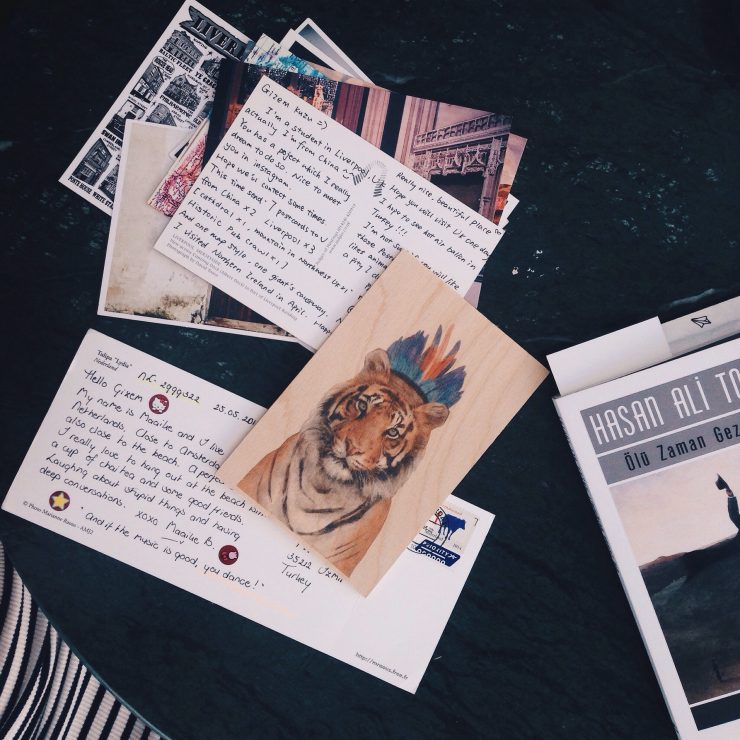 LIVER
Gizem Kuzu =)
I'm a student in Liverpool, UK
actually I'm from China ~
You has a poject which I really
dream to do so. Nice to meet
you in instagram.
Hope we'll contect some times
This time send 7 postcards to u.
from China ×2 , Liverpool ×3
[catedral ×1, mountain in Northwest UK ×1,
Historic Pub crawl ×1]
And one map style, one giant's causeway.
I visited Northern Ireland in April.
Really nice, beautiful place
Hope you will visit UK one day
I hope to see hot air balloon in
Turkey !!!
I'm not
you will like
these Pos
a pty
Tulipa "Lydia"
Nederland
NL-2999322
25.05.20
Hello Gizem
My name is Maaike and I live
Netherlands. Close to Amsterda
also close to the beach. A perfec
I really love to hang out at the beach with
a cup of chai tea and some good friends.
Laughing about stupid things and having
deep conversations. xoxo Maaike B
"And if the music is good, you dance!"
© Photo Marianne
35212 Izmi
Turkey
PRIORITY
http://mroozics.free.fr
HASAN ALİ TO
Ölü Zaman Gez